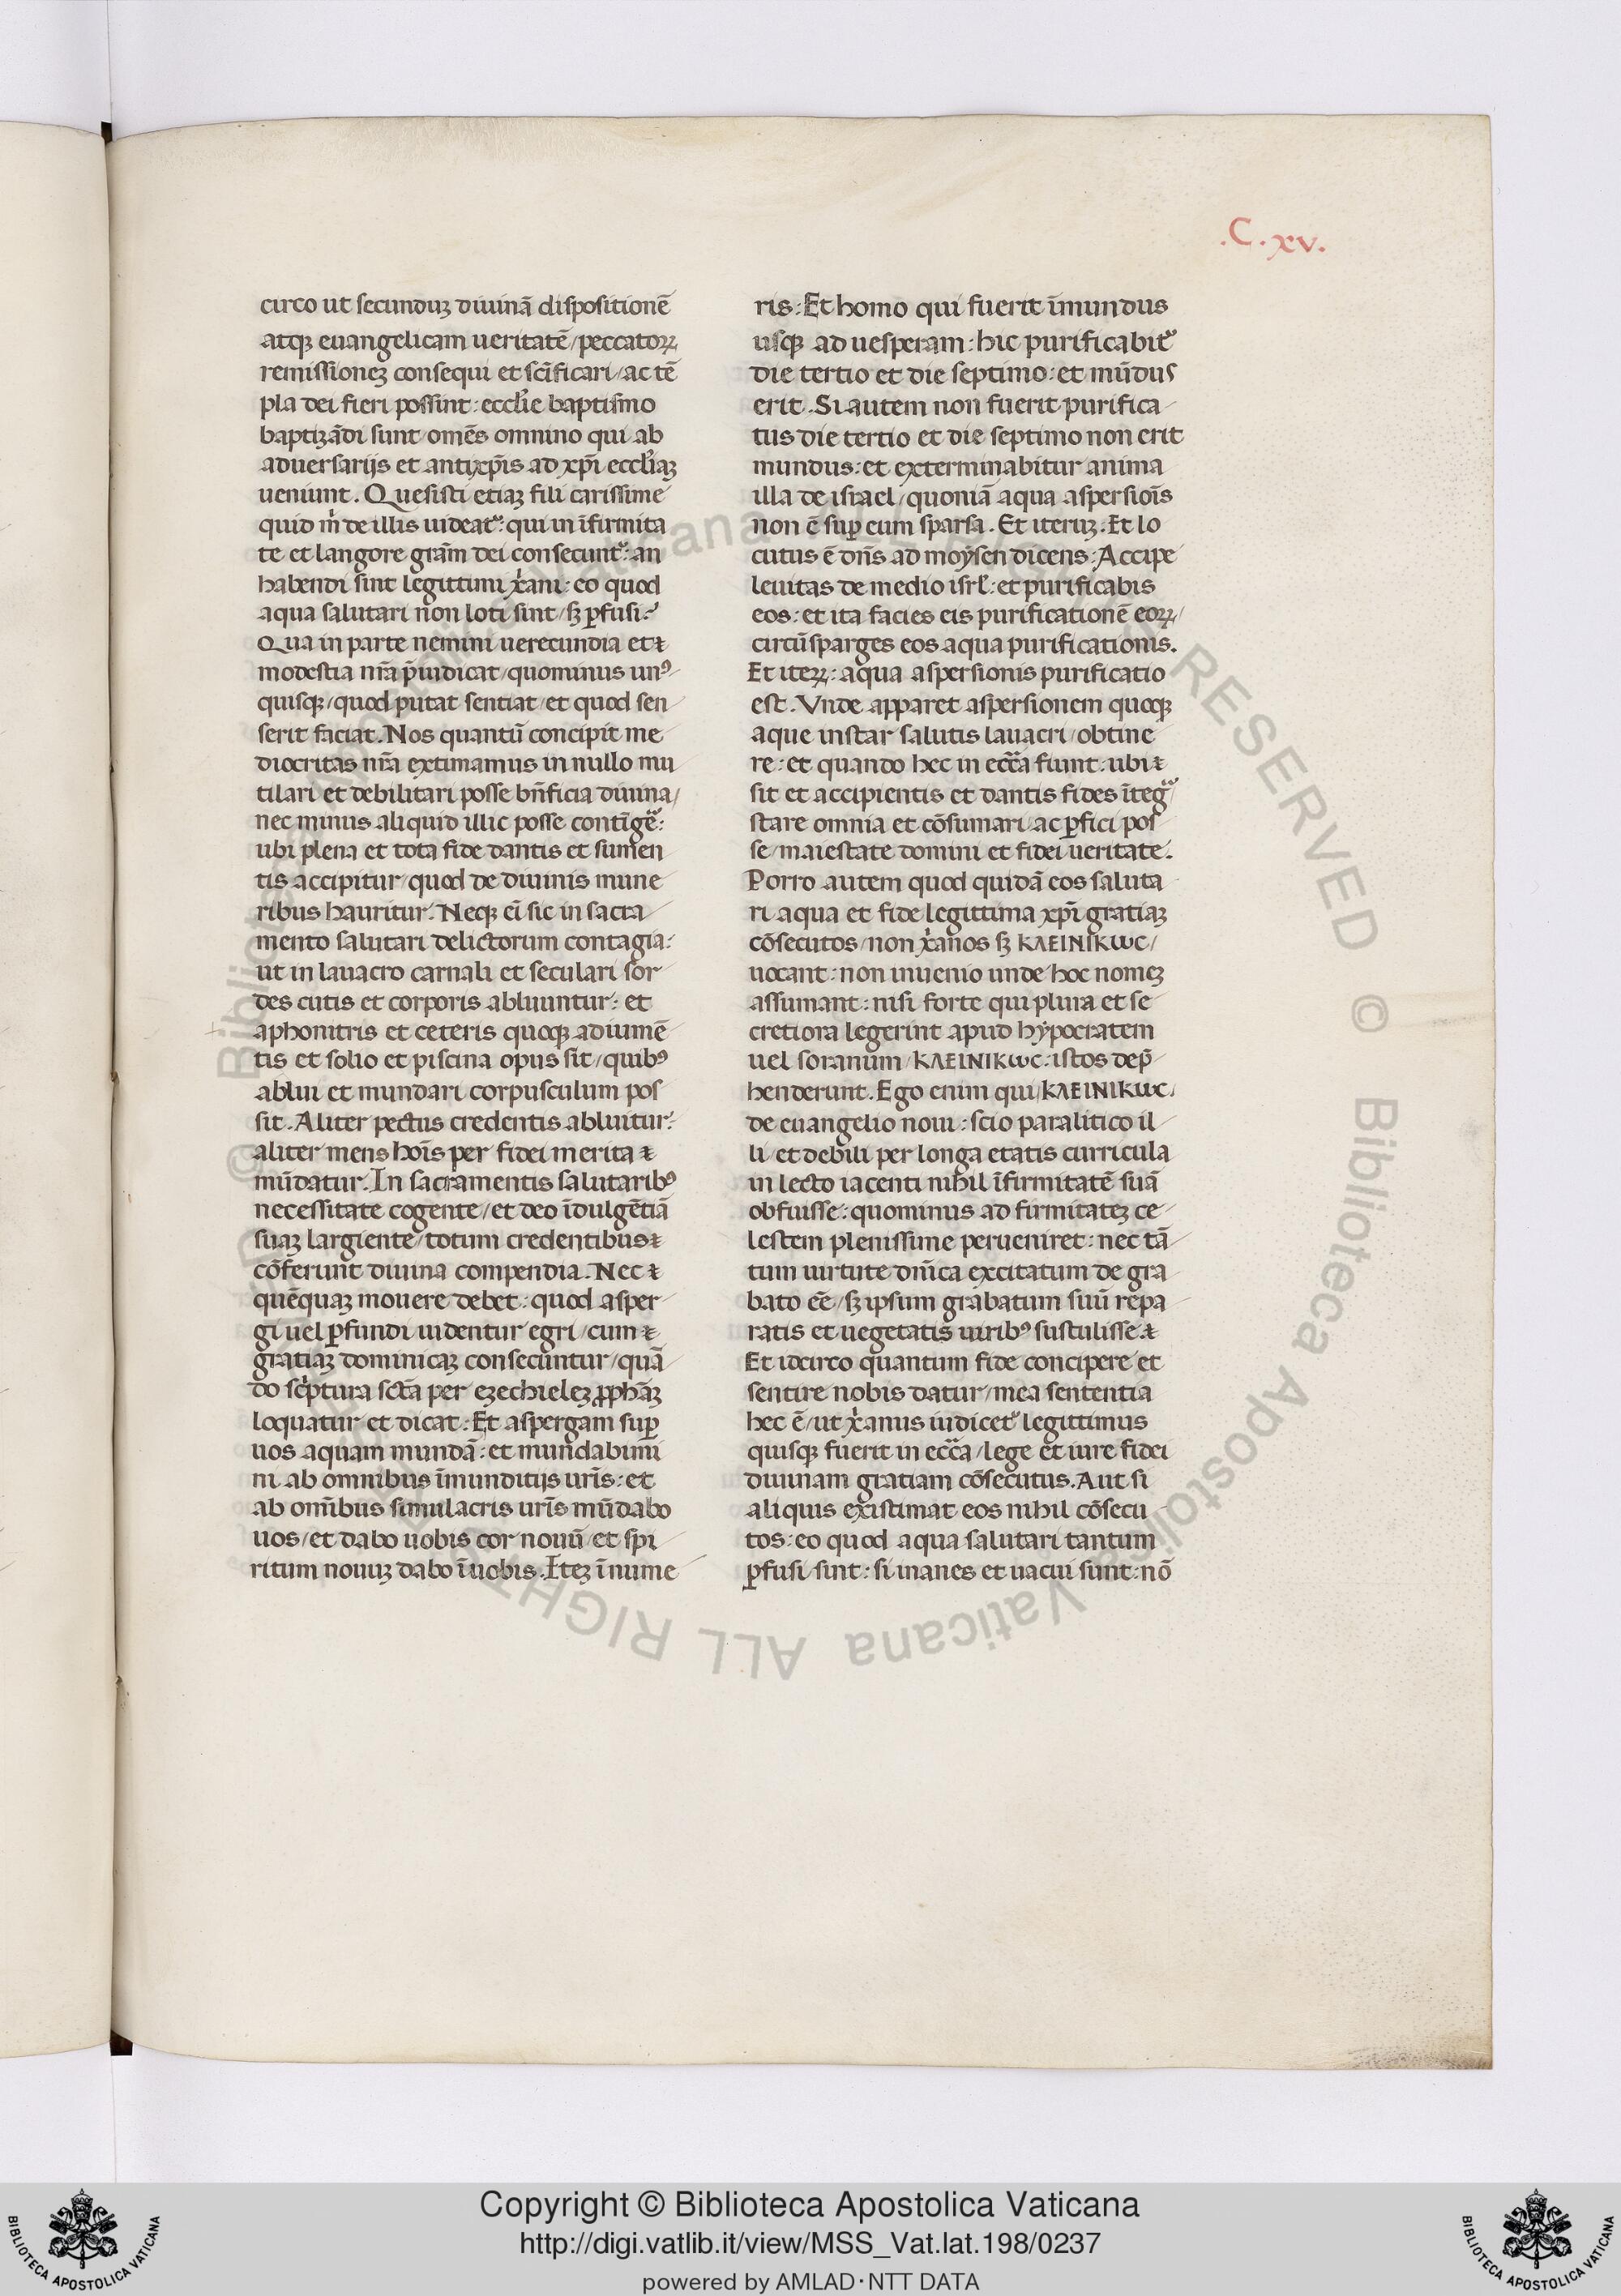 .C.xv.
circo ut secunduꝫ diuinã dispositionẽ
atqꝫ euangelicam ueritatẽ/peccatoꝝ
remissioneꝫ consequi et scĩficari/ac tẽ
pla dei fieri possint: eccłie baptismo
baptizãdi sunt/omẽs omnino qui ab
aduersarijs et antixp̃is ad xp̃i eccłiaꝫ
ueniunt. Quesisti etiaꝫ fili carissime
quid m̃ de illis uideatᷣ: qui in ĩfirmita
te et langore grãm dei consecuntᷣ: an
habendi sint legittimi xᷣani: eo quod
aqua salutari non loti sint/sꝫ ꝑfusi?
Qua in parte nemini uerecundia et
modestia nr̃a p̃iudicat/quominus unꝰ
quisqꝫ/quod putat sentiat/et quod sen
serit faciat. Nos quantũ concipit me
diocritas nr̃a extimamus in nullo mu
tilari et debilitari posse bñficia diuina/
nec minus aliquid illic posse contĩgẽ:
ubi plena et tota fide dantis et sumen
tis accipitur/quod de diuinis mune
ribus hauritur. Neqꝫ ẽi sic in sacra
mento salutari delictorum contagia:
ut in lauacro carnali et seculari sor
des cutis et corporis abluuntur: et
aphonitris et ceteris quoqꝫ adiumẽ
tis et solio et piscina opus sit/quibꝰ
ablui et mundari corpusculum pos
sit. Aliter pectus credentis abluitur:
aliter mens hoĩs per fidei merita
mũdatur. In sacramentis salutaribꝰ
necessitate cogente/et deo ĩdulgẽtiã
suaꝫ largiente/totum credentibus
cõferunt diuina compendia. Nec
quẽquaꝫ mouere debet: quod asper
gi uel ꝑfundi uidentur egri/cum
gratiaꝫ dominicaꝫ consecuntur/quã
do scᷣptura sctã per ezechieleꝫ ꝓphãꝫ
loquatur et dicat: Et aspergam suꝑ
uos aquam mundã: et mundabimi
ni ab omnibus ĩmunditijs ur̃is: et
ab omĩbus simulacris ur̃is mũdabo
uos/et dabo uobis cor nouũ/et spi
ritum nouuꝫ dabo ĩ uobis. Iteꝫ ĩ nume
ris: Et homo qui fuerit ĩmundus
usqꝫ ad uesperam: hic purificabitᷣ
die tertio et die septimo: et mũdus
erit. Si autem non fuerit purifica
tus die tertio et die septimo non erit
mundus: et exterminabitur anima
illa de israel/quoniã aqua aspersiõis
non ẽ suꝑ eum sparsa. Et iteruꝫ. Et lo
cutus ẽ dñs ad moẏsen dicens: Accipe
leuitas de medio isrł: et purificabis
eos: et ita facies eis purificationẽ eoꝝ/
circũsparges eos aqua purificationis.
Et iteꝝ: aqua aspersionis purificatio
est. Vnde apparet aspersionem quoqꝫ
aque instar salutis lauacri/obtine
re: et quando hec in eccᷓa fiunt: ubi
sit et accipientis et dantis fides ĩtegᷓ/
stare omnia et cõsumari ac ꝑfici pos
se/maiestate domini et fidei ueritate.
Porro autem quod quidã eos saluta
ri aqua et fide legittima xp̃i gratiaꝫ
cõsecutos/non xᷣanos sꝫ ΚΛΕΙΝΙΚωC/
uocant: non inuenio unde hoc nomeꝫ
assumant: nisi forte qui plura et se
cretiora legerint apud hẏpocratem
uel soranum/ΚΛΕΙΝΙΚωC: istos dep̃
henderunt. Ego enim qui/ΚΛΕΙΝΙΚωC/
de euangelio noui: scio paralitico il
li/et debili per longa etatis curricula
in lecto iacenti nihil ĩfirmitatẽ suã
obfuisse: quominus ad firmitateꝫ ce
lestem plenissime perueniret: nec tã
tum uirtute dñica excitatum de gra
bato eẽ/sꝫ ipsum grabatum suũ repa
ratis et uegetatis uiribꝰ sustulisse.
Et idcirco quantum fide concipere et
sentire nobis datur/mea sententia
hec ẽ/ut xᷣanus iudicetᷣ legittimus
quisqꝫ fuerit in eccᷓa/lege et iure fidei
diuinam gratiam cõsecutus. Aut si
aliquis existimat eos nihil cõsecu
tos: eo quod aqua salutari tantum
ꝑfusi sint: si inanes et uacui sunt: nõ
© Biblioteca Apostolica Vaticana ALL RIGHTS RESERVED © Biblioteca Apostolica Vaticana ALL RIGHTS RESERVED
Copyright © Biblioteca Apostolica Vaticana
http://digi.vatlib.it/view/MSS_Vat.lat.198/0237
powered by AMLAD·NTT DATA
BIBLIOTECA APOSTOLICA VATICANA
BIBLIOTECA APOSTOLICA VATICANA